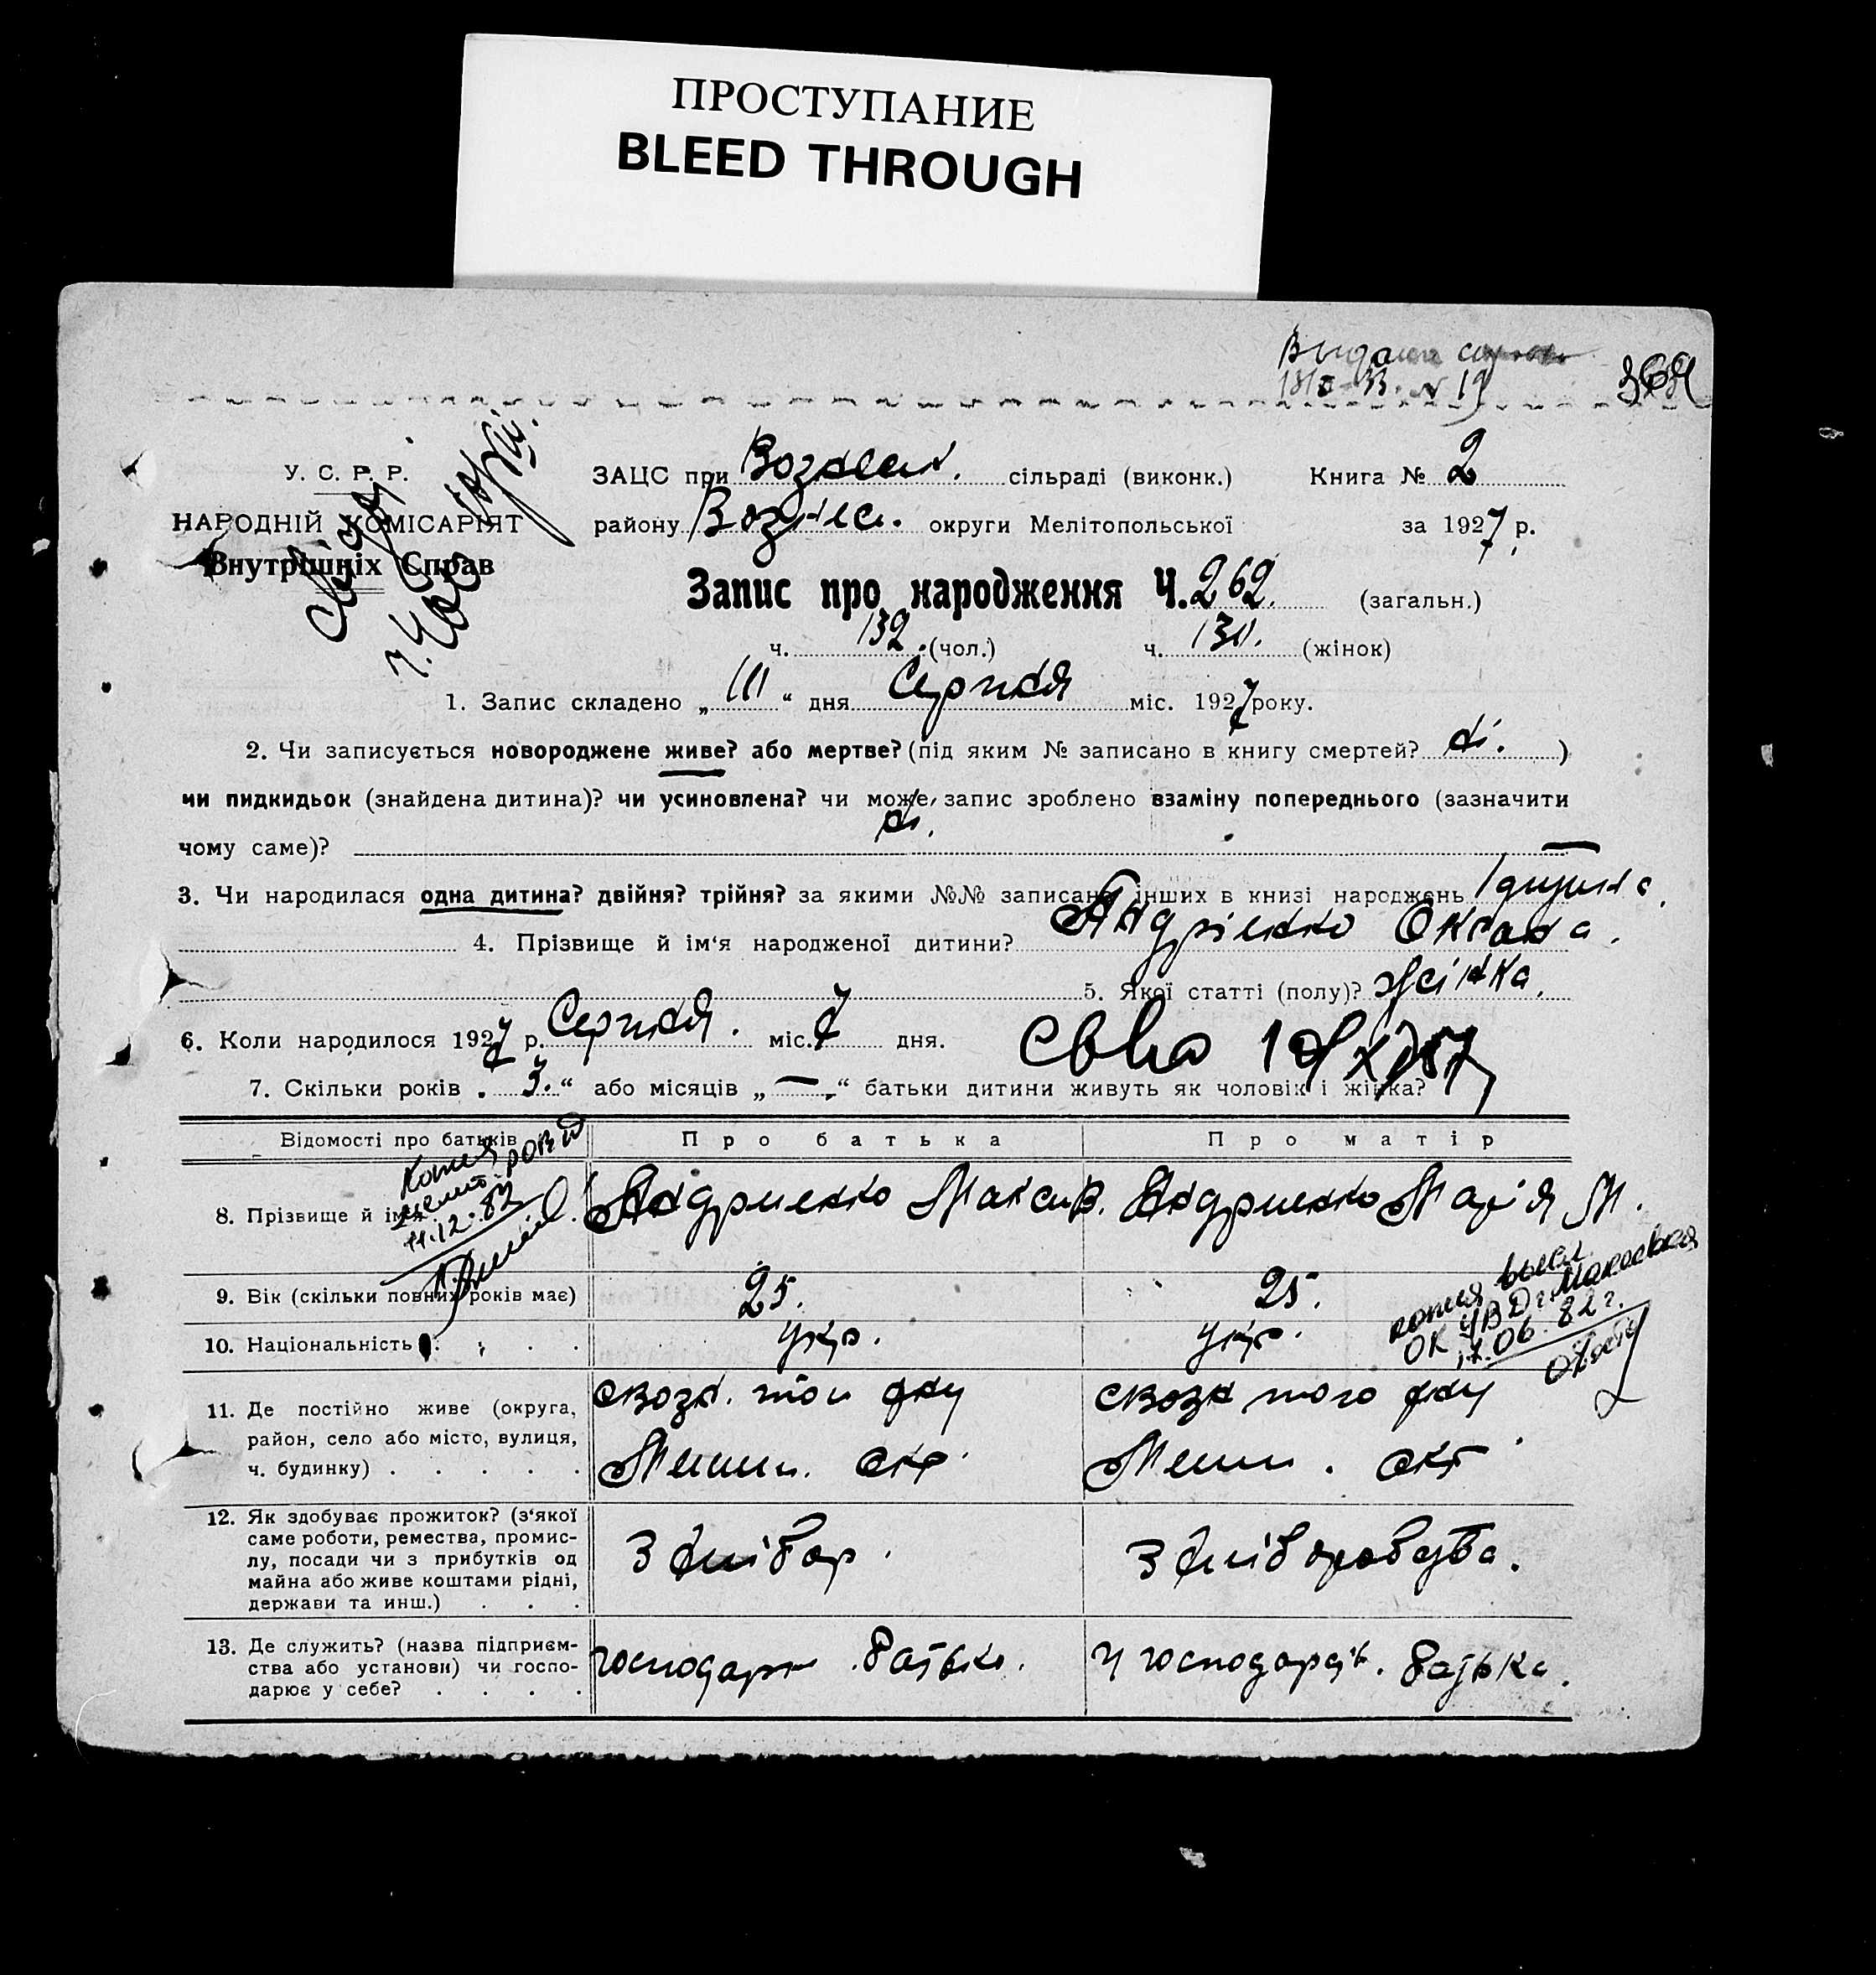 ПРОСТУПАНИЕ
BLEED THROUGH
У. С. Р. Р.
НАРОДНІЙ КОМІСАРІЯТ
Внутрішніх Справ
ЗАЦС при сільраді (виконк.) Книга № 2
району Вознес. округи Мелітопольської за 1927 р.
Запис про народження Ч. 262. (загальн.)
ч. 132 (чол.) ч. 130. (жінок)
1. Запис складено „ “ дня Серпня міс. 1927 року.
2. Чи записується новороджене живе? або мертве? (під яким № записано в книгу смертей? ні. )
чи пидкидьок (знайдена дитина)? чи усиновлена? чи може, запис зроблено взаміну попереднього (зазначити
чому саме)? ні. —
3. Чи народилася одна дитина? двійня? трійня? за якими №№ записано інших в книзі народжень 1 дитина.
4. Прізвище й ім‘я народженої дитини? Андрієнко Оксана.
5. Якої статті (полу)? Жінка.
6. Коли народилося 1927 р. Серпня. міс. 7 дня.
7. Скільки років „ 3. “ або місяців „ — “ батьки дитини живуть як чоловік і жінка?
Відомості про батьків Про батька Про матір
8. Прізвище й ім‘я Андриенко Максим В. Андриенко Марія М.
9. Вік (скільки повних років має) 25. 25.
10. Національність укр. укр.
11. Де постійно живе (округа,
район, село або місто, вулиця,
ч. будинку)
12. Як здобуває прожиток? (з‘якої
саме роботи, ремества, промис-
лу, посади чи з прибутків од
майна або живе коштами рідні,
держави та инш.)
З хлібор. З хліборобства.
13. Де служить? (назва підприєм-
ства або установи) чи госпо-
дарює у себе?
господари батька. У господарст. батька.